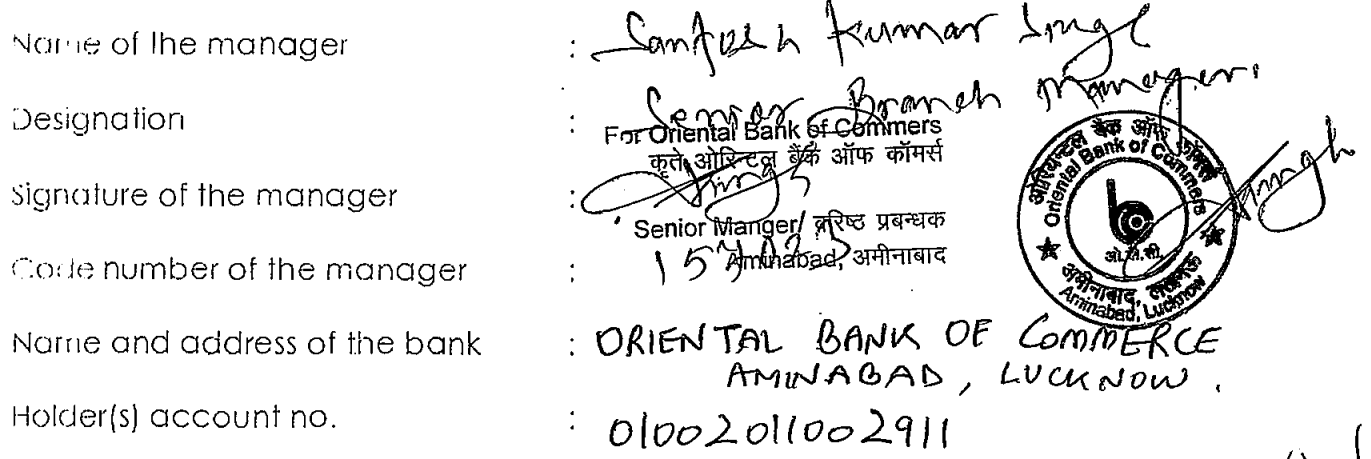 Name of the manager : Santosh Kumar Singh
Designation : Senior Branch Manager.
For Oriental Bank of Commers
कृते ओरिन्टल बैंक ऑफ कॉमर्स
Signature of the manager : Singh
Senior Manger/ वरिष्ठ प्रबन्धक
Aminabad, अमीनाबाद
Code number of the manager :
ओरियन्टल बैंक ऑफ कॉमर्स
Oriental Bank of Commers
ओ.बी.सी.
अमीनाबाद, लखनऊ
Aminabad, Lucknow
Singh
Name and address of the bank : ORIENTAL BANK OF COMMERCE
AMINABAD, LUCKNOW.
Holder(s) account no. : 01002011002911